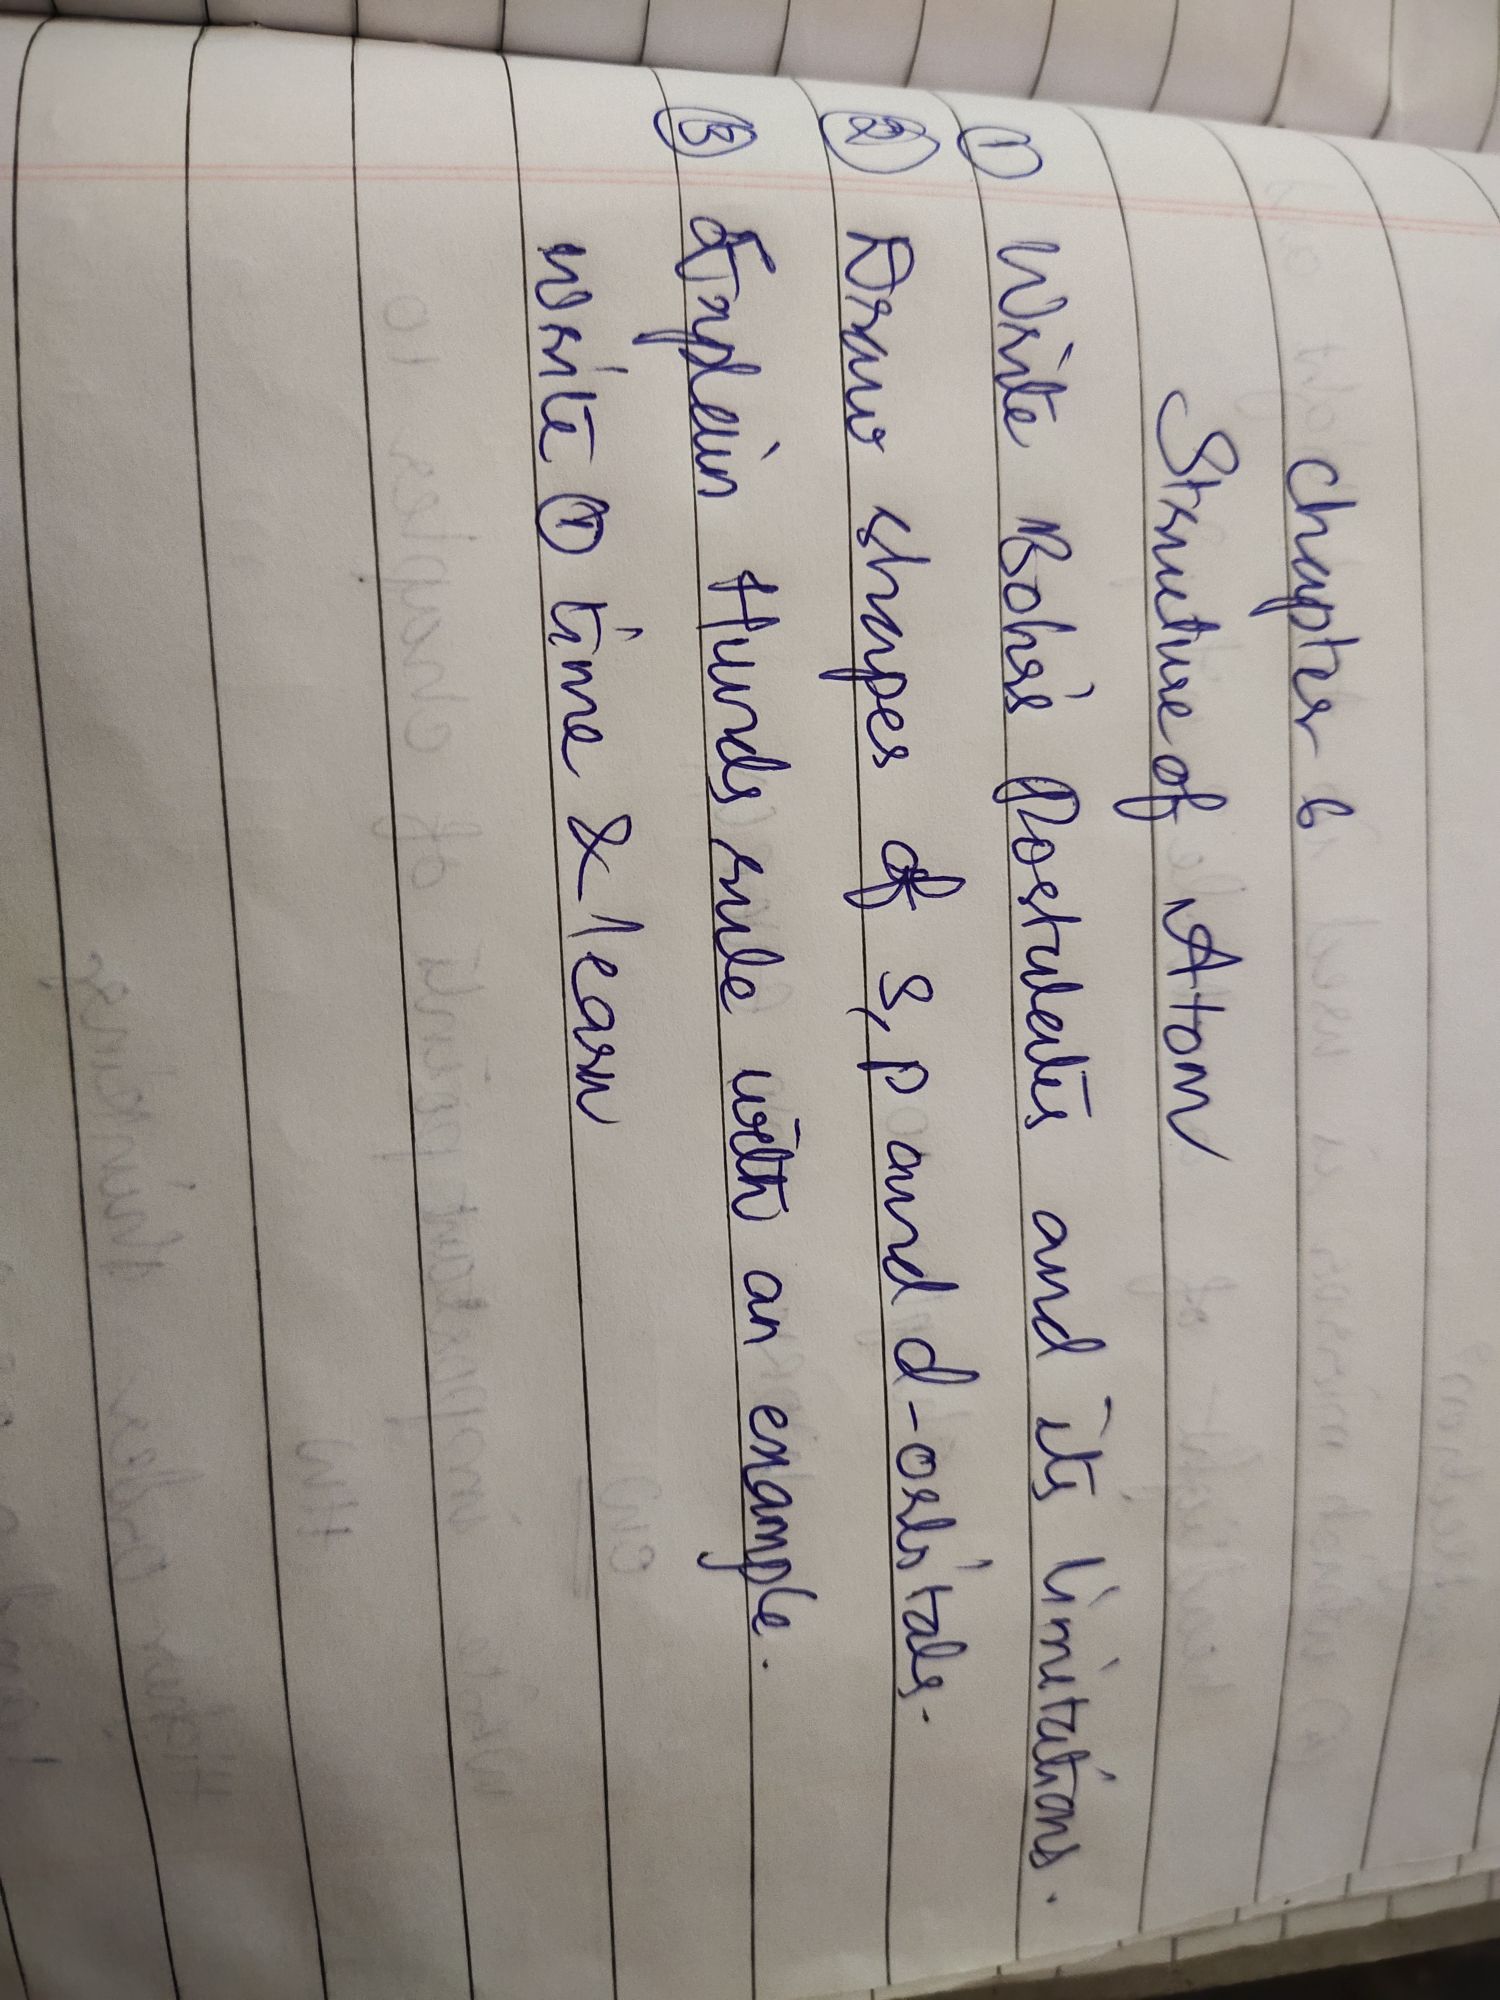 Chapter 6
Structure of Atom
① Write Bohr's Postulates and its limitations.
② Draw shapes of s, p and d-orbitals.
③ Explain Hunds rule with an example.
write ① time & learn